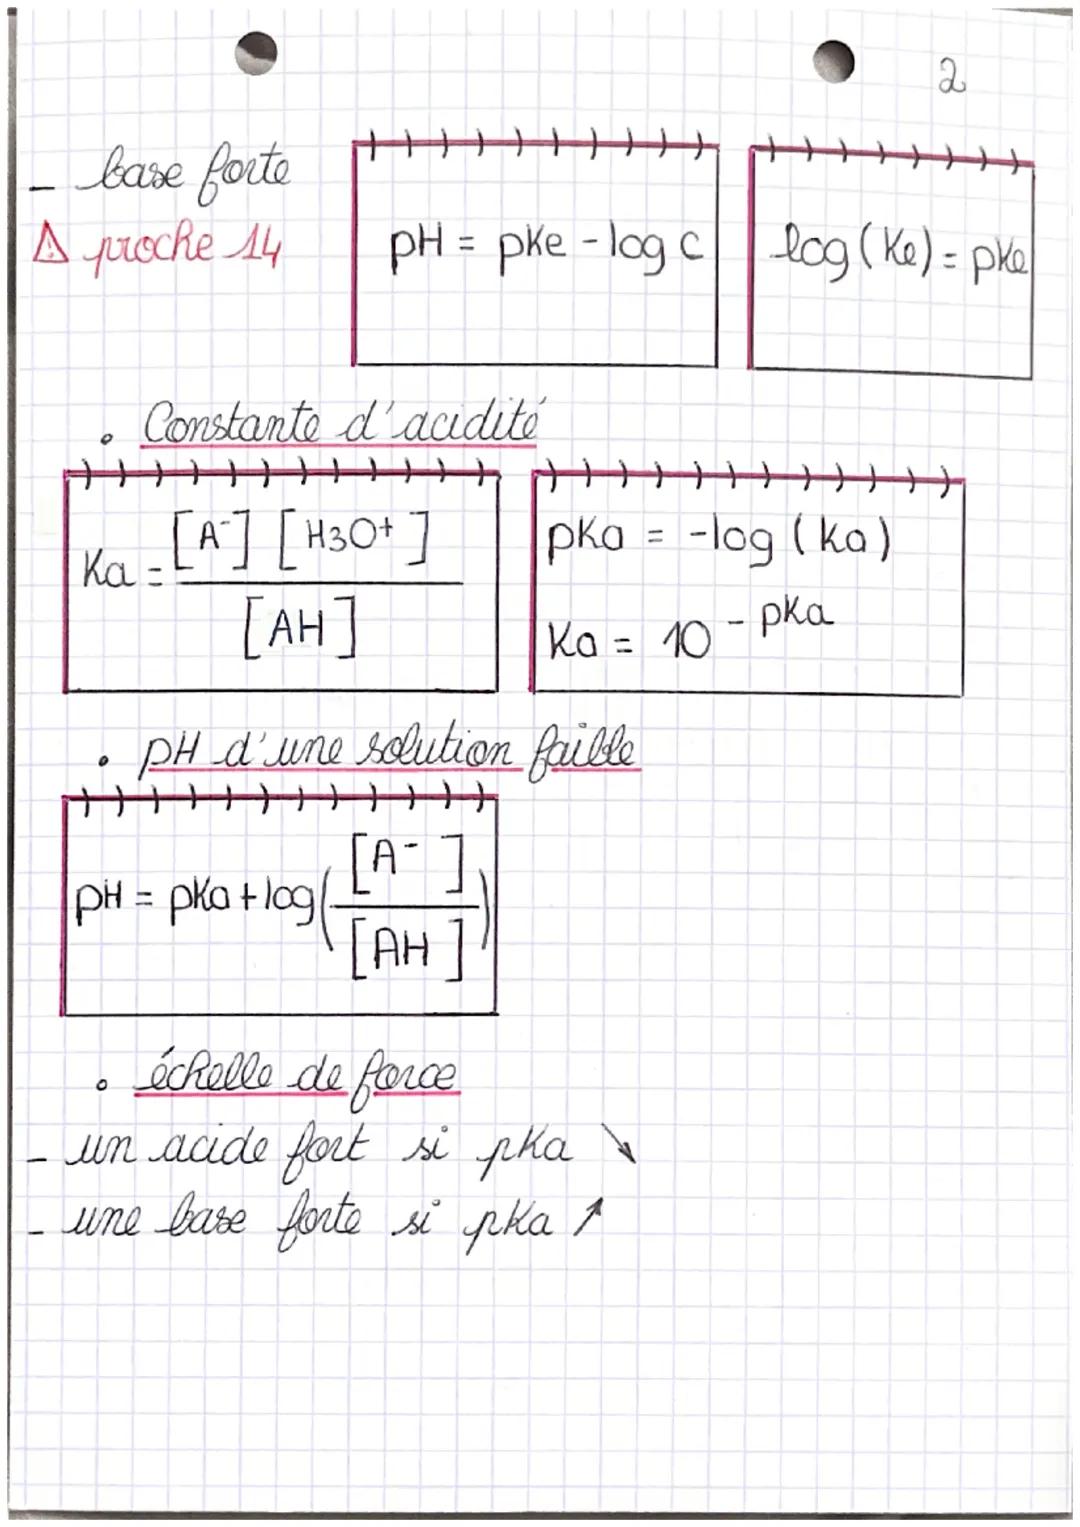 2
- base forte
⚠ proche 14
pH = pKe - log c
log (Ke) = pKe
• Constante d'acidité
Ka = [A⁻] [H3O+] / [AH]
pKa = -log (Ka)
Ka = 10 - pKa
• pH d'une solution faible
pH = pKa + log ( [A⁻] / [AH] )
• échelle de force
- un acide fort si pKa ↘
- une base forte si pKa ↗